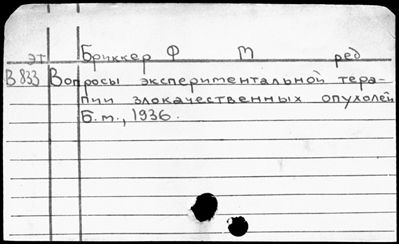 эт Бриккер Ф М ред
В 833 Вопросы экспериментальной тера-
пии злокачественных опухолей
Б.m., 1936.